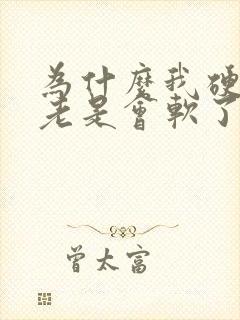 為什麼我硬
老是會軟了
曾太富